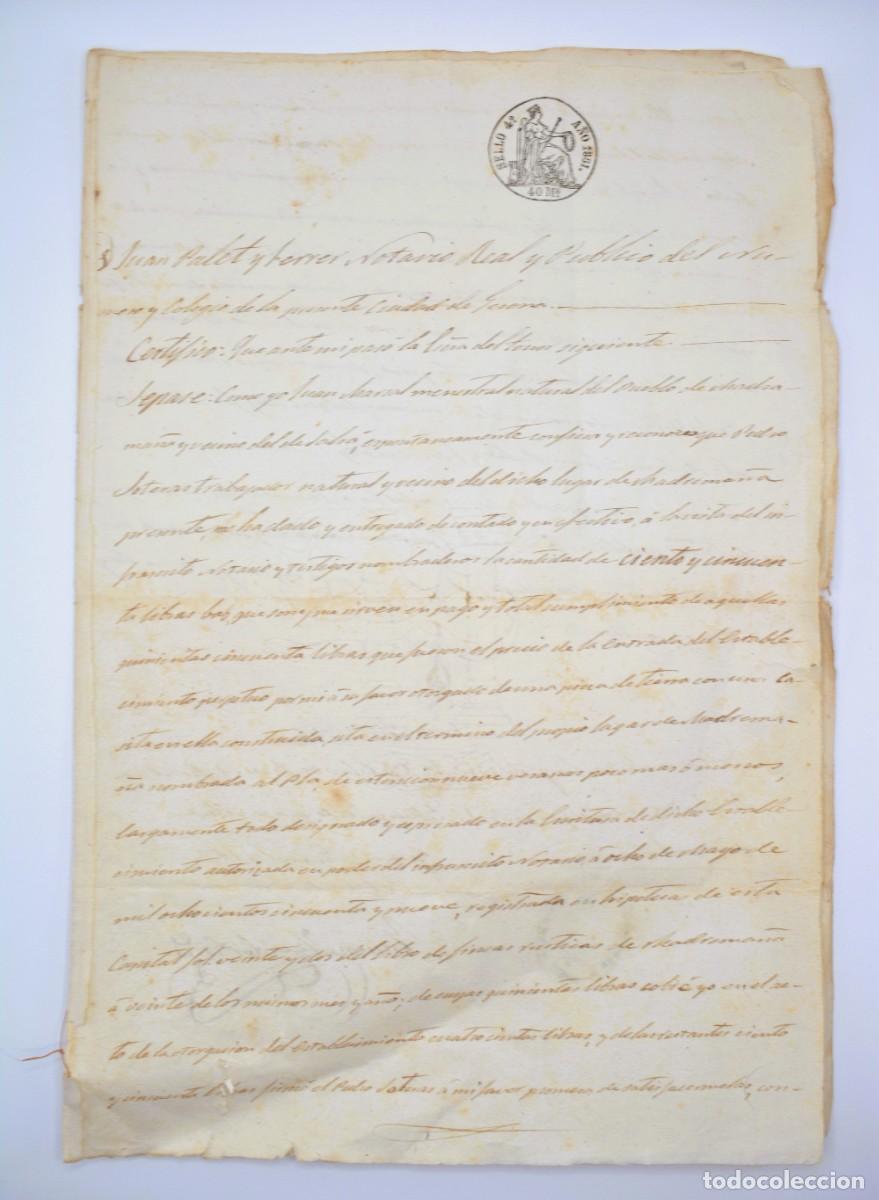 SELLO 4º AÑO 1861.
40 Ms
Juan Palet y Ferrer Notario Real y Publico del Nu-
mero y Colegio de la presente Ciudad de Gerona.
Certifico: Que ante mi pasó la del tenor siguiente
Sepase: Como yo Juan Marcal menestral natural del Pueblo de Madra-
maña y vecino del de espontaneamente confieso y reconozco que Pedro
trabajador natural y vecino del dicho lugar de Madremaña
presente, me ha dado y entregado de contado y en efectivo, á la vista del in-
frascrito Notario y testigos nombraderos la cantidad de ciento y cincuen-
ta libras que son y me sirven en pago y total cumplimiento de aquellas
quinientas cincuenta libras que fueron el precio de la entrada del Estable-
cimiento perpetuo por mi á su favor otorgado de una pieza de tierra con una Ca-
sita en ella construida, sita en el termino del propio lugar de Madrema-
ña nombrada al Pla, de estencion nueve vesanas poco mas ó menos,
largamente todo designado y espresado en la Escritura de dicho Estable-
cimiento autorizada en poder del infrascrito Notario, á ocho de Mayo de
mil ochocientos cincuenta y nueve, registrada en hipotecas de esta
Capital fol. veinte y dos del libro de fincas rusticas de Madremaña
á veinte de los mismos mes y año; de cuyas quinientas libras cobré yo en el ac-
to de la otorgacion del establecimiento cuatrocientas libras, y de las restantes ciento
y cincuenta libras firmó el Pedro á mi favor promesa de satisfacermelas, con-
todocoleccion